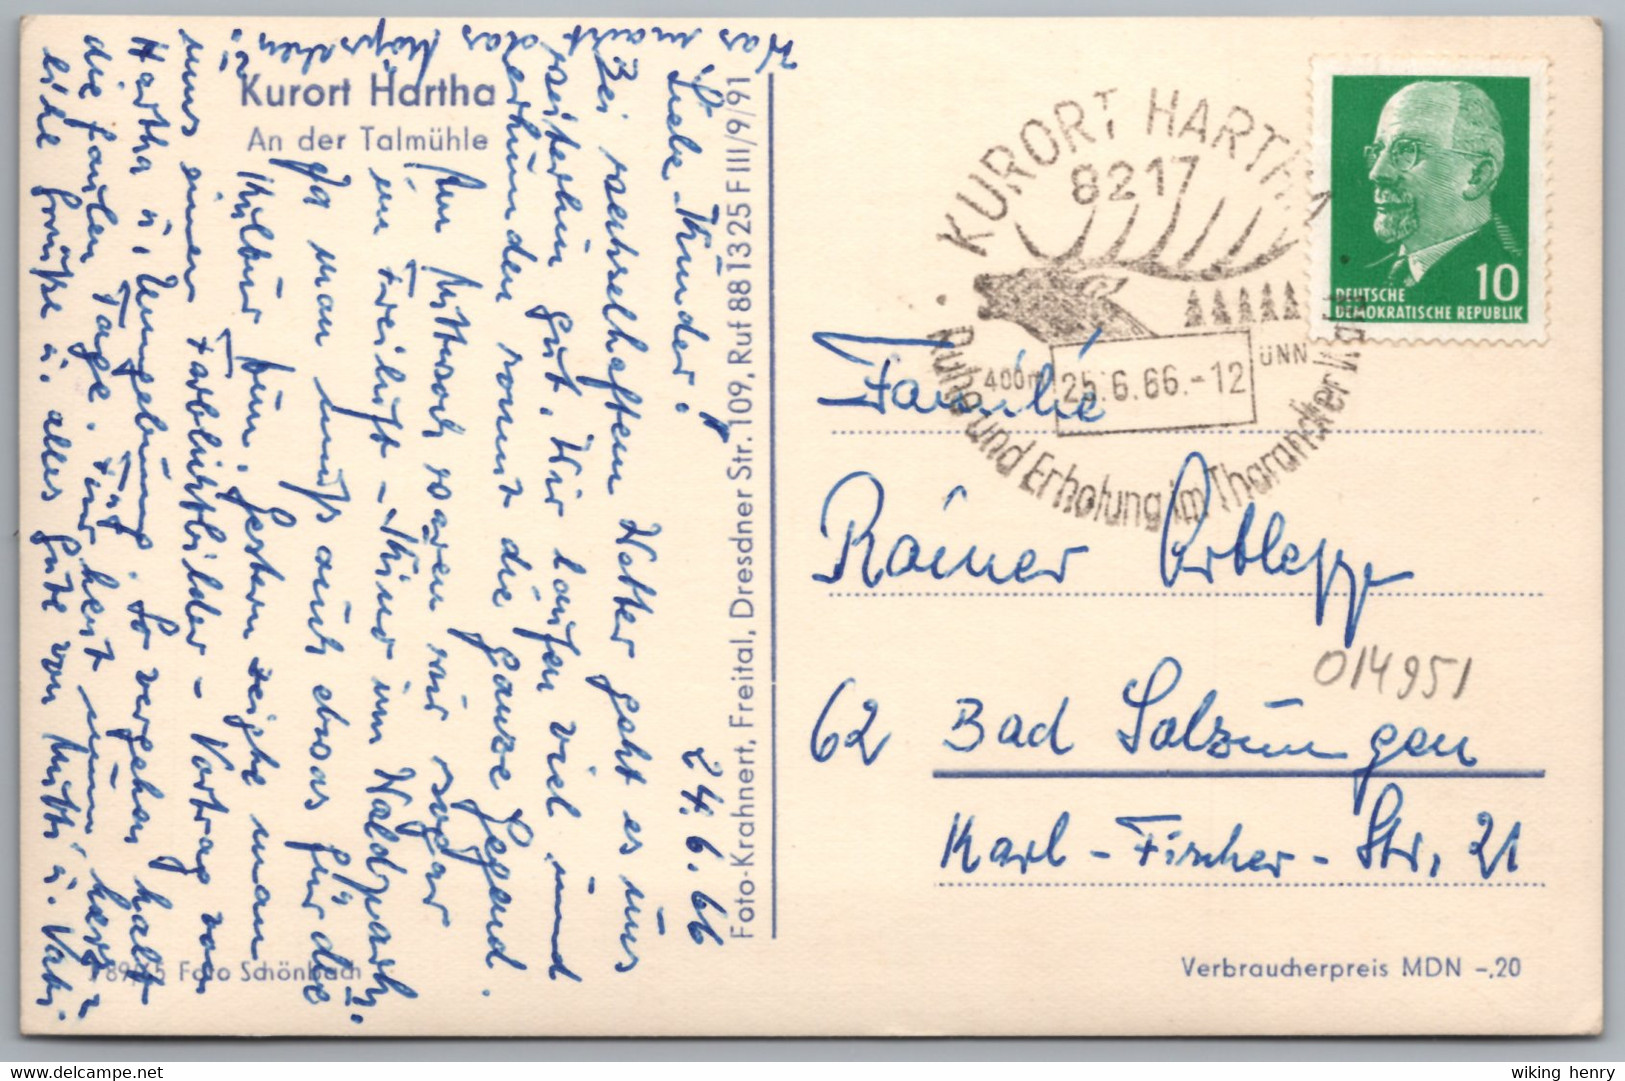 Kurort Hartha
An der Talmühle
Was macht das Mäuschen?
24.6.66
Liebe Kinder!
Bei wechselhaftem Wetter geht es uns
weiterhin gut. Wir laufen viel und
erkunden somit die ganze Gegend.
Am Mittwoch waren wir sogar
im Freiluft-Kino im Waldpark.
Ja man muß auch etwas für die
Kultur tun. Gestern zeigte man
uns einen Farblichtbilder-Vortrag von
Hartha u. Umgebung. So vergehen halt
die faulen Tage. Für heut nun herz-
liche Grüße u. alles Gute von Mutti u. Vati.
Foto-Krahnert, Freital, Dresdner Str. 109, Ruf 881325 F III/9/91
Foto Schönbach
KURORT HARTHA
8217
400m ü NN
25.6.66.-12
Ruhe und Erholung im Tharandter Wald
10
DEUTSCHE
DEMOKRATISCHE REPUBLIK
Familie
Rainer
014951
62 Bad Salzungen
Karl-Fischer-Str. 21
Verbraucherpreis MDN -,20
wiking henry